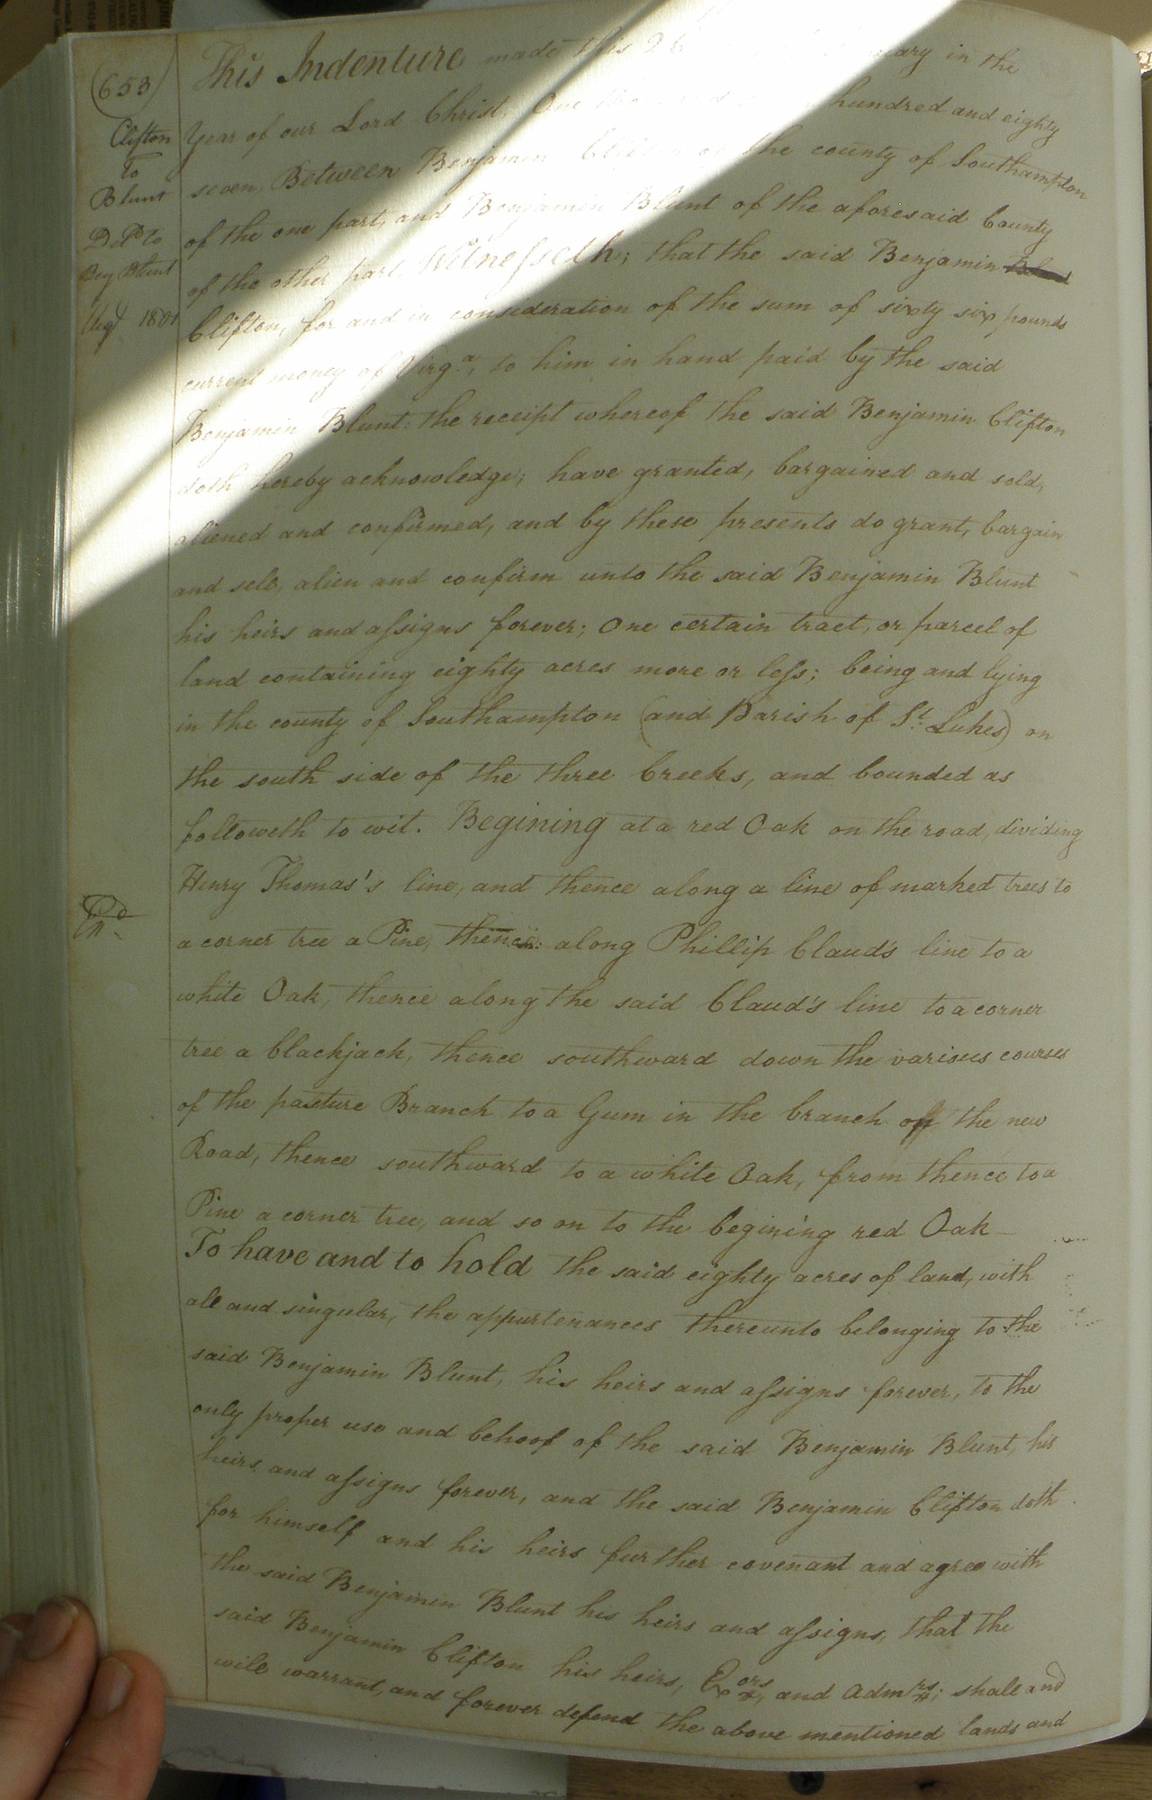 (653)
Clifton
To
Blunt
Deld to
Benj Blunt
Augt 1801
Exd
This Indenture made this 26 uary in the
Year of our Lord Christ, One hundred and eighty
seven, Between Benjamin Clifton of the county of Southampton
of the one part, and Benjamin Blunt of the aforesaid County
of the other part Witnesseth; that the said Benjamin
Clifton, for and in consideration of the sum of sixty six pounds
current money of Virga, to him in hand paid by the said
Benjamin Blunt: the receipt whereof the said Benjamin Clifton
doth hereby acknowledge; have granted, bargained and sold,
aliened and confirmed, and by these presents do grant, bargain
and sell, alien and confirm unto the said Benjamin Blunt
his heirs and assigns forever; One certain tract, or parcel of
land containing eighty acres more or less; being and lying
in the county of Southampton (and Parish of St. Lukes) on
the south side of the three Creeks, and bounded as
followeth to wit. Begining at a red Oak on the road, dividing
Henry Thomas's line, and thence along a line of marked trees to
a corner tree a Pine, thence: along Phillip Claud's line to a
white Oak, thence along the said Claud's line to a corner
tree a blackjack, thence southward down the various courses
of the pasture Branch to a Gum in the branch off the new
Road, thence southward to a white Oak, from thence to a
Pine a corner tree, and so on to the begining red Oak
To have and to hold the said eighty acres of land, with
all and singular, the appurtenances thereunto belonging to the
said Benjamin Blunt, his heirs and assigns forever, to the
only proper use and behoof of the said Benjamin Blunt, his
heirs and assigns forever, and the said Benjamin Clifton doth
for himself and his heirs further covenant and agree with
the said Benjamin Blunt his heirs and assigns, that the
said Benjamin Clifton his heirs, Exors, and Admrs; shall and
will warrant, and forever defend the above mentioned lands and